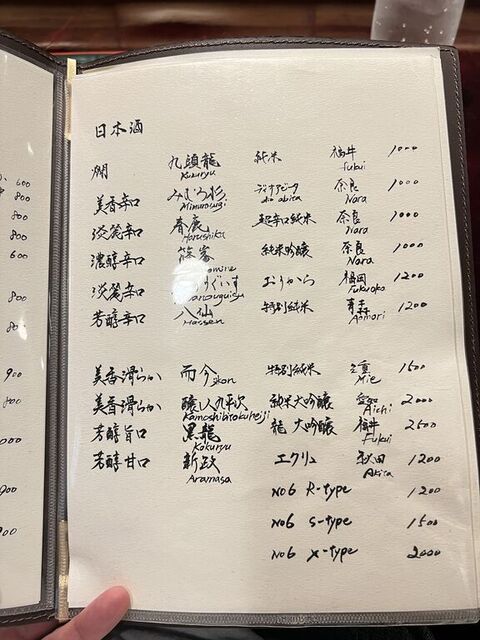 日本酒
燗 九頭龍 純米 福井 1000
Kuzuryu fukui
美香辛口 みむろ杉 ディオアビータ 奈良 1000
Mimurosugi dio abita Nara
淡麗辛口 春鹿 超辛口純米 奈良 1000
Harushika Nara
濃醇辛口 篠峯 純米吟醸 奈良 1000
omine Nara
淡麗辛口 ぐいす おりがら 福岡 1200
uguisu Fukuoka
芳醇辛口 八仙 特別純米 青森 1200
Hassen Aomori
美香滑らか 而今 特別純米 三重 1500
Jikon Mie
美香滑らか 醸し人九平次 純米大吟醸 愛知 2000
Kamoshibitokuheiji Aichi
芳醇旨口 黒龍 龍 大吟醸 福井 2500
Kokuryu Fukui
芳醇甘口 新政 エクリュ 秋田 1200
Aramasa Akita
No6 R-type 1200
No6 S-type 1500
No6 X-type 2000
600
800
800
800
600
800
900
800
000
900
900